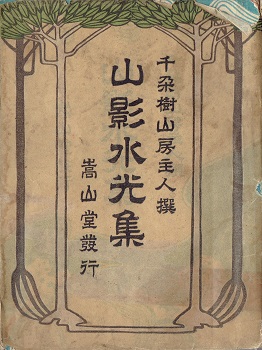 千朶樹山房主人撰
山影水光集
嵩山堂發行